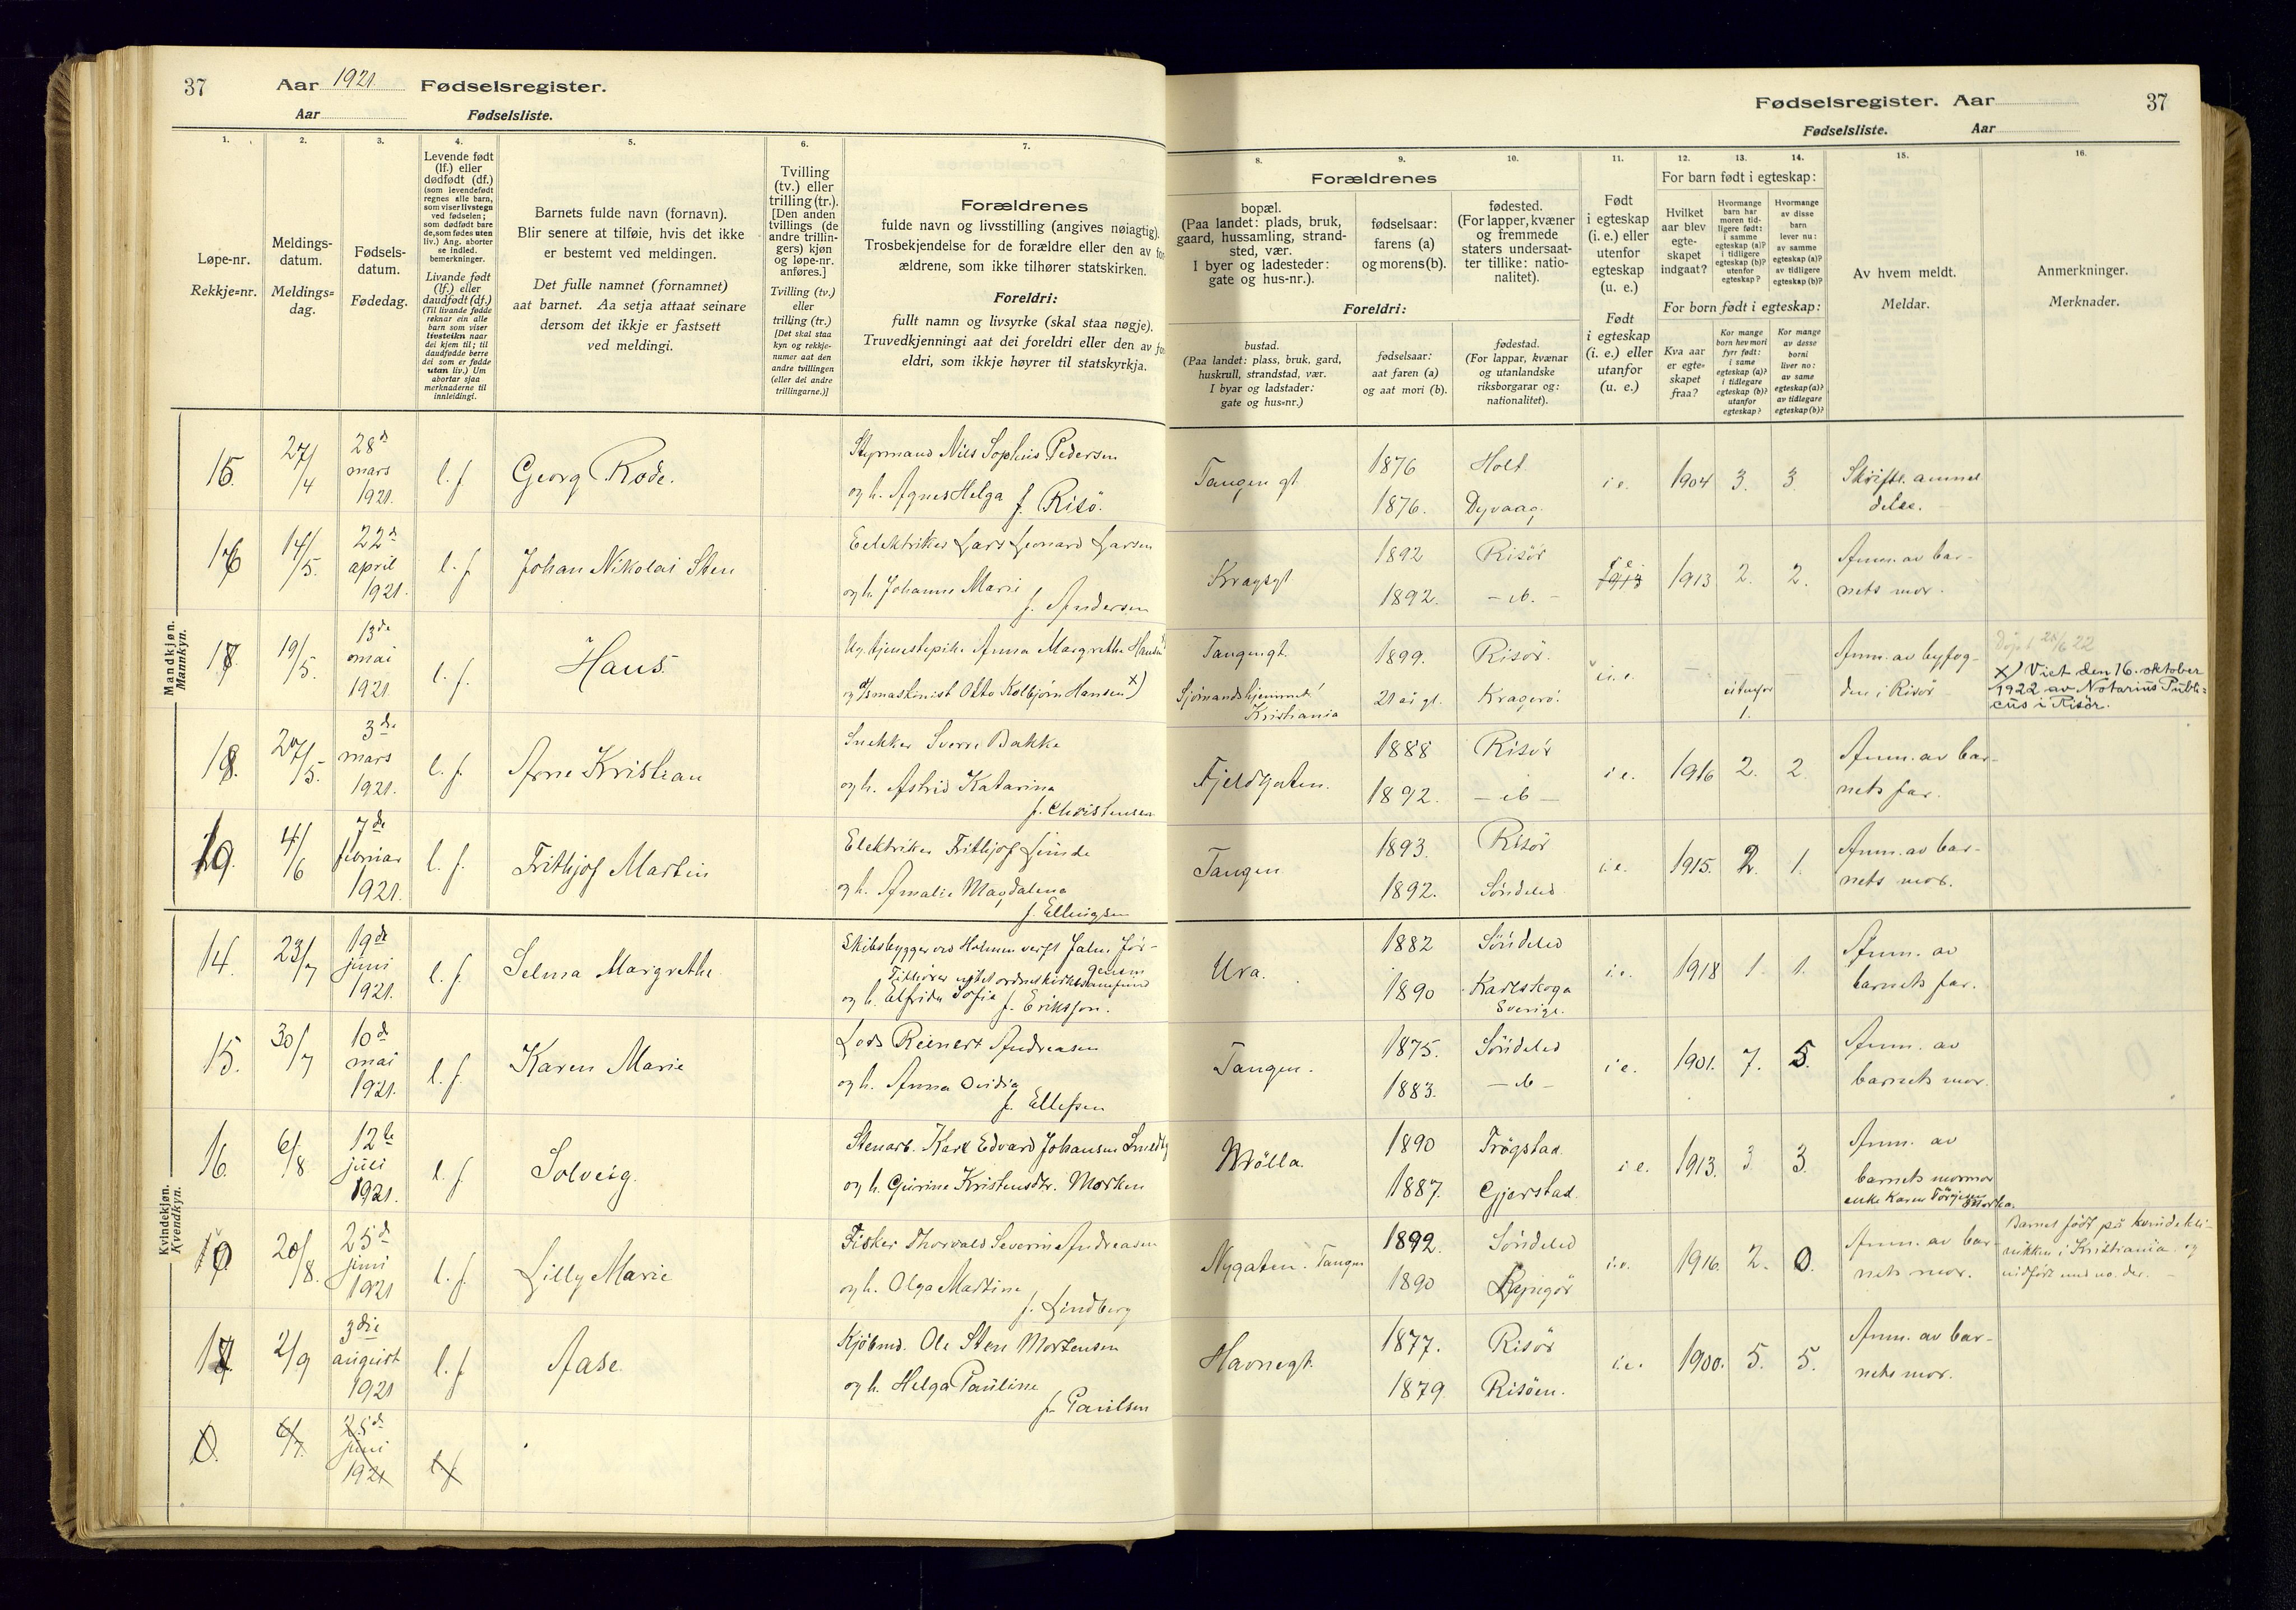 37
Aar 1921. Fødselsregister.
Aar Fødselsliste.
Fødselsregister. Aar
37
Fødselsliste. Aar
1.
2.
3.
4.
5.
6.
7.
8.
9.
10.
11.
12.
13.
14.
15.
16.
Løpe-nr.
Rekkje=nr.
Meldings-
datum.
Meldings=
dag.
Fødsels-
datum.
Fødedag.
Levende født
(lf.) eller
dødfødt (df.)
(som levendefødt
regnes alle barn,
som viser livstegn
ved fødselen;
som dødfødt bare
de, som fødes uten
liv.) Ang. aborter
se indled.
bemerkninger.
Livande født
(lf.) eller
daudfødt (df.)
(Til livande fødde
reknar ein alle
barn som viser
livsteikn naar
dei kjem til; til
daudfødde berre
dei som er fødde
utan liv.) Um
abortar sjaa
merknaderne til
innleidingi.
Barnets fulde navn (fornavn).
Blir senere at tilføie, hvis det ikke
er bestemt ved meldingen.
Det fulle namnet (fornamnet)
aat barnet. Aa setja attaat seinare
dersom det ikkje er fastsett
ved meldingi.
Tvilling
(tv.) eller
trilling (tr.).
[Den anden
tvillings (de
andre trillin-
gers) kjøn
og løpe-nr.
anføres.]
Tvilling (tv.)
eller
trilling (tr.)
[Det skal staa
kyn og rekkje-
numer aat den
andre tvillingen
(eller dei andre
trillingarne.)]
Forældrenes
fulde navn og livsstilling (angives nøiagtig).
Trosbekjendelse for de forældre eller den av for
ældrene, som ikke tilhører statskirken.
Foreldri:
fullt namn og livsyrke (skal staa nøgje).
Truvedkjenningi aat dei foreldri eller den av
eldri, som ikkje høyrer til statskyrkja.
Forældrenes
bopæl.
(Paa landet: plads, bruk,
gaard, hussamling, strand-
sted, vær.
I byer og ladesteder:
gate og hus-nr.).
fødselsaar:
farens (a)
og morens (b).
fødested.
(For lapper, kvæner
og fremmede
staters undersaat-
ter tillike: natio-
nalitet).
Foreldri:
bustad.
(Paa landet: plass, bruk, gard,
huskrull, strandstad, vær.
I byar og ladstader:
gate og hus=nr.)
fødselsaar:
aat faren (a)
og aat mori (b).
fødestad.
(For lappar, kvænar
og utanlandske
riksborgarar og:
nationalitet).
Født
i egteskap
(i. e.) eller
utenfor
egteskap
(u. e.)
Født
i egteskap
(i. e.) eller
utanfor
(u. e.)
For barn født i egteskap:
Hvilket
aar blev
egte-
skapet
indgaat?
Hvormange
barn har
moren tid-
ligere født:
i samme
egteskap (a)?
i tidligere
egteskap (b)?
utenfor
egteskap?
Hvormange
av disse
barn
lever nu:
av samme
egteskap (a)?
av tidligere
egteskap (b)?
For born født i egteskap:
Kva aar
er egte-
skapet
fraa?
Kor mange
born hev mori
fyrr født:
i same
egteskap (a)?
i tidlegare
egteskap (b)?
utanfor
egteskap?
Kor mange
av desse
borni
liver no:
av same
egteskap (a)?
av tidlegare
egteskap (b)?
Av hvem meldt.
Meldar.
Anmerkninger.
Merknader.
Mandkjøn.
Mannkyn.
15. 27/4 28d mars 1921. l. f. Georg Rode. Styrmand Nils Sophus Pedersen
og h. Agnes Helga f. Risö. Tangen gt. 1876 Holt i. e. 1904 3. 3. Skriftl. anmel
1876. Dyvaag. delse.
16 14/5. 22d april 1921. l. f Johan Nikolai Sten Eelektriker Lars Leonard Larsen
og h. Johanne Marie f. Andersen Kragsgt 1892 Risör i. e. 1913 2. 2. Anm. av bar-
1892. – ib. – nets mor.
17 19/5. 13de mai 1921. l. f. Hans. Ug. tjenestepike Anna Margrethe Hansen
og maskinist Otto Kolbjørn Hansen x) Tangengt. 1899. Risör. Anm. av byfog-
Sjömandshjemmet Kristiania 21 år gl. Kragerö. – 1. – den i Risör
x) Viet den 16. oktober
1922 av Notarius Publi-
cus i Risör.
18. 27/5 3de mars 1921. l. f. Arne Kristian Snekker Sverre Bakke
og h. Astrid Katarina f. Christensen Fjeldgaten. 1888 Risör i. e. 1916 2. 2 Anm. av bar-
1892. – ib – nets far.
19. 4/6 7de februar 1921. l. f. Frithjof Martin Elektriker Frithjof Linde
og h. Amalie Magdalena f. Ellingsen Tangen 1893. Risör i. e. 1915. 2. 1. Anm. av bar-
1892. Söndeled nets mor.
Kvindekjøn.
Kvendkyn.
14. 23/7 19de juni 1921. l. f. Selma Margrethe Skibsbygger ved Holmen verft Jør-
gensen
og h. Elfrida Sofie f. Eriksson. Ura. 1882 Söndeled i. e. 1918 1. 1. Anm. av
1890 Karlskoga barnets far.
Sverige.
15. 30/7 10d mai 1921. l. f. Karen Marie Lods Reinert Andreasen
og h. Anna Ovidia f. Ellefsen Tangen. 1875. Söndeled i e. 1901. 7. 5. Anm. av
1883. – ib – barnets mor.
16. 6/8 12te juli 1921. l. f Solveig. Stenarb. Karl Edvard Johansen
og h. Gurine Kristensdtr. Morken Mölla. 1890 Trögstad. i e. 1913. 3 3. Anm. av
1887. Gjerstad. barnets mormor
enke Karen
20/8. 25d juni 1921 l. f. Lilly Marie Fisker Thorvald Severin Andreasen
og h. Olga Martine f. Lindberg Nygaten. Tangen 1892. Söndeled i. e. 1916. 2. 0. Anm. av bar-
1890 nets mor.
Barnet født på kvindekli-
nikken i Kristiania og
2/9 3die august 1921 l. f Aase. Kjöbmd. Ole Sten Mortensen
og h. Helga Pauline f. Paulsen Havnegt. 1877. Risör i. e. 1900. 5. 5. Anm. av bar-
1879. Risöen. nets mor.
0. 6/7. 25d juni 1921 l f